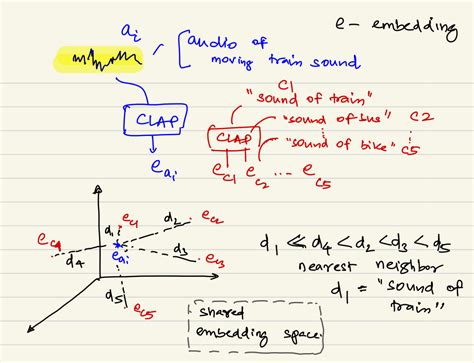 e - embedding
a_i
audio of
moving train sound
CLAP
e_ai
C1
"sound of train"
"sound of bus" C2
"sound of bike" C5
CLAP
e_C1 e_C2 ... e_C5
e_C4 d4
d1 e_C1
e_ai
d2 e_C2
d3 e_C3
d5 e_C5
d1 ≪ d4 < d2 < d3 < d5
nearest neighbor
d1 = "sound of
train"
shared
embedding space